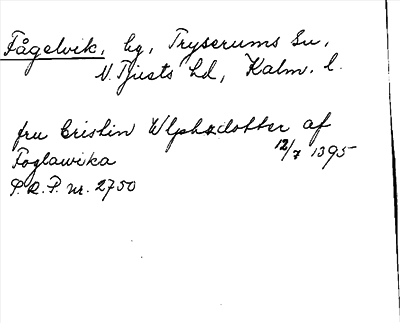 Fågelvik, hg, Tryserums sn,
N. Tjusts hd, Kalm. l.
fru Cristin Wlphxdotter af
Foglawika 12/7 1395
P.R.P. nr. 2750